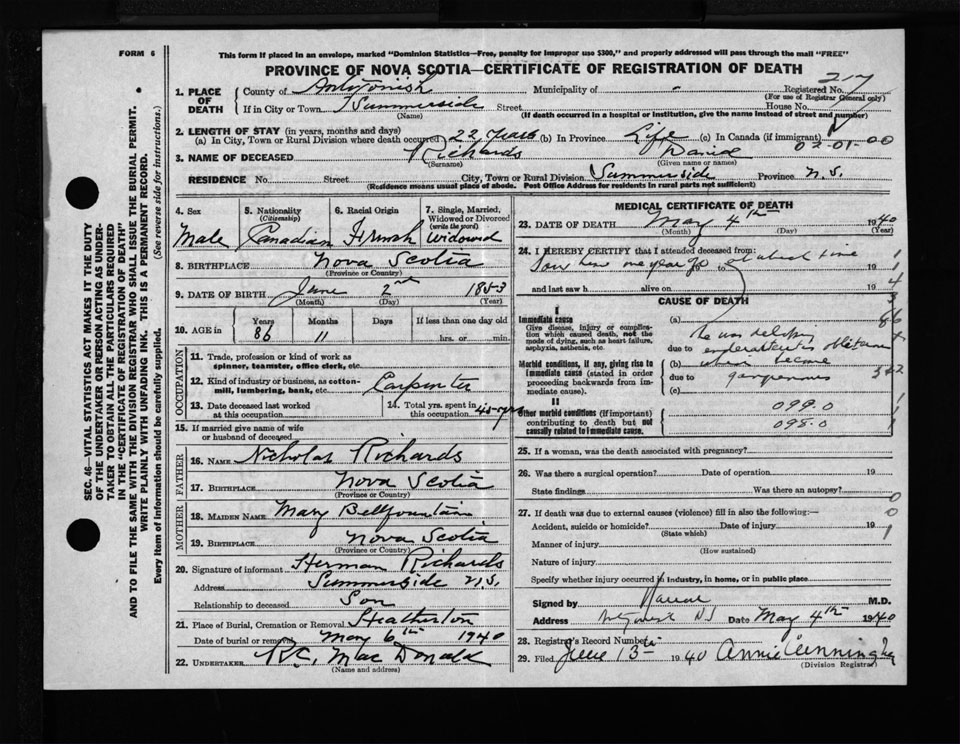 FORM 6
This form if placed in an envelope, marked "Dominion Statistics—Free, penalty for improper use $300," and properly addressed will pass through the mail "FREE"
PROVINCE OF NOVA SCOTIA—CERTIFICATE OF REGISTRATION OF DEATH
SEC. 46—VITAL STATISTICS ACT MAKES IT THE DUTY
OF THE UNDERTAKER OR PERSON ACTING AS UNDER-
TAKER TO OBTAIN ALL THE PARTICULARS REQUIRED
IN THE "CERTIFICATE OF REGISTRATION OF DEATH"
AND TO FILE THE SAME WITH THE DIVISION REGISTRAR WHO SHALL ISSUE THE BURIAL PERMIT.
WRITE PLAINLY WITH UNFADING INK. THIS IS A PERMANENT RECORD.
Every item of information should be carefully supplied. (See reverse side for instructions.)
1. PLACE OF DEATH
County of Antigonish Municipality of " Registered No. 217
(For use of Registrar General only)
If in City or Town Summerside Street House No.
(Name) (If death occurred in a hospital or institution, give the name instead of street and number)
2. LENGTH OF STAY (in years, months and days)
(a) In City, Town or Rural Division where death occurred 22 years (b) In Province Life (c) In Canada (if immigrant)
02-01-00
3. NAME OF DECEASED Richards David
(Surname) (Given name or names)
RESIDENCE No. Street City, Town or Rural Division Summerside Province N.S.
(Residence means usual place of abode. Post Office Address for residents in rural parts not sufficient)
4. Sex 5. Nationality (Citizenship) 6. Racial Origin 7. Single, Married, Widowed or Divorced (write the word)
Male Canadian French Widowed
8. BIRTHPLACE Nova Scotia
(Province or Country)
9. DATE OF BIRTH June 2nd 1853
(Month) (Day) (Year)
10. AGE in Years Months Days If less than one day old
86 11 hrs. or min.
OCCUPATION
11. Trade, profession or kind of work as spinner, teamster, office clerk, etc.
12. Kind of industry or business, as cotton-mill, lumbering, bank, etc. Carpenter
13. Date deceased last worked at this occupation 14. Total yrs. spent in this occupation 45 yrs
15. If married give name of wife or husband of deceased
FATHER
16. Name Nicholas Richards
17. Birthplace Nova Scotia
(Province or Country)
MOTHER
18. Maiden Name Mary Bellfountain
19. Birthplace Nova Scotia
(Province or Country)
20. Signature of informant Herman Richards
Address Summerside N.S.
Relationship to deceased Son
21. Place of Burial, Cremation or Removal Heatherton
Date of burial or removal May 6th 1940
22. Undertaker R.C. MacDonald
(Name and address)
MEDICAL CERTIFICATE OF DEATH
23. DATE OF DEATH May 4th 1940
(Month) (Day) (Year)
24. I HEREBY CERTIFY that I attended deceased from:
Saw him one year ago to at which time 19
and last saw h alive on 19
CAUSE OF DEATH
I
Immediate cause
Give disease, injury or complication which caused death, not the mode of dying, such as heart failure, asphyxia, asthenia, etc.
(a) he was
due to
Morbid conditions, if any, giving rise to immediate cause (stated in order proceeding backwards from immediate cause).
(b) become
due to gangrenous
(c)
II
Other morbid conditions (if important) contributing to death but not causally related to immediate cause.
099.0
098.0
25. If a woman, was the death associated with pregnancy?
26. Was there a surgical operation? Date of operation 19
State findings Was there an autopsy?
27. If death was due to external causes (violence) fill in also the following:—
Accident, suicide or homicide? Date of injury 19
(State which)
Manner of injury
(How sustained)
Nature of injury
Specify whether injury occurred in industry, in home, or in public place
Signed by M.D.
Address Antigonish N S Date May 4th 1940
28. Registrar's Record Number
29. Filed June 13th 1940 Annie Cunningham
(Division Registrar)